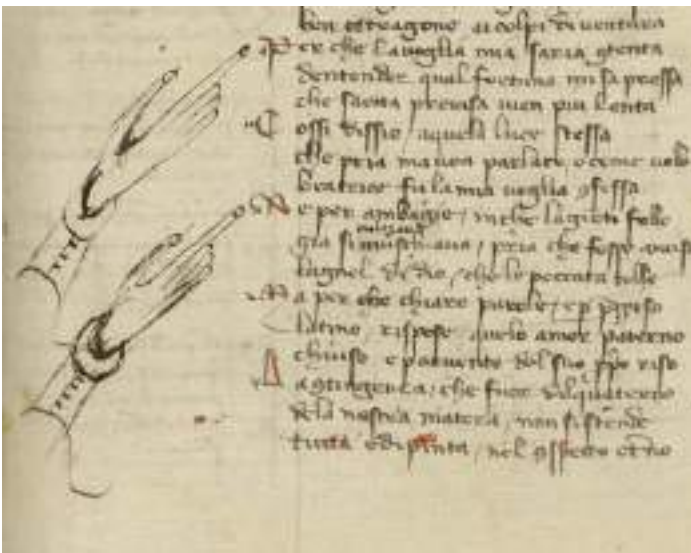 ben tetragono ai colpi di ventura
Per che la voglia mia saria ꝯtenta
dentender qual fortuna mi sapressa
che saetta previsa vien piu lenta
Cossi dissio aquela luce stessa
che pria mavea parlato, e come volle
beatrice fu la mia voglia ꝯfessa
Ne per ambaige, in che la gente folle
gia / pria che fosse
lagnel de dio, che le peccata tolle
Ma per che chiare parole, e p
latino, rispose quelo amor paterno
chiuso e parvente del suo ppo riso
La ꝯtingença, che fuor del quaterno
dela nostra matera, non si stende
tutta e dipinta, nel ꝯspetto etno